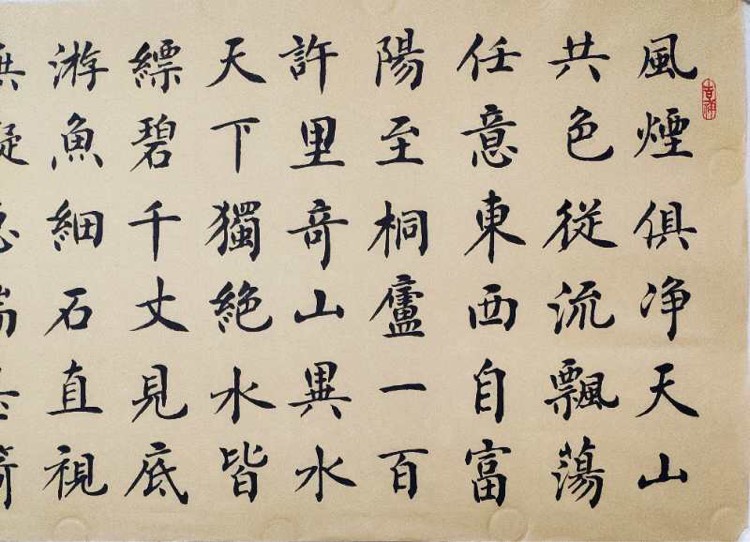 風煙俱净天山
共色從流飄蕩
任意東西自富
陽至桐廬一百
許里竒山異水
天下獨絶水皆
縹碧千丈見底
游魚細石直視